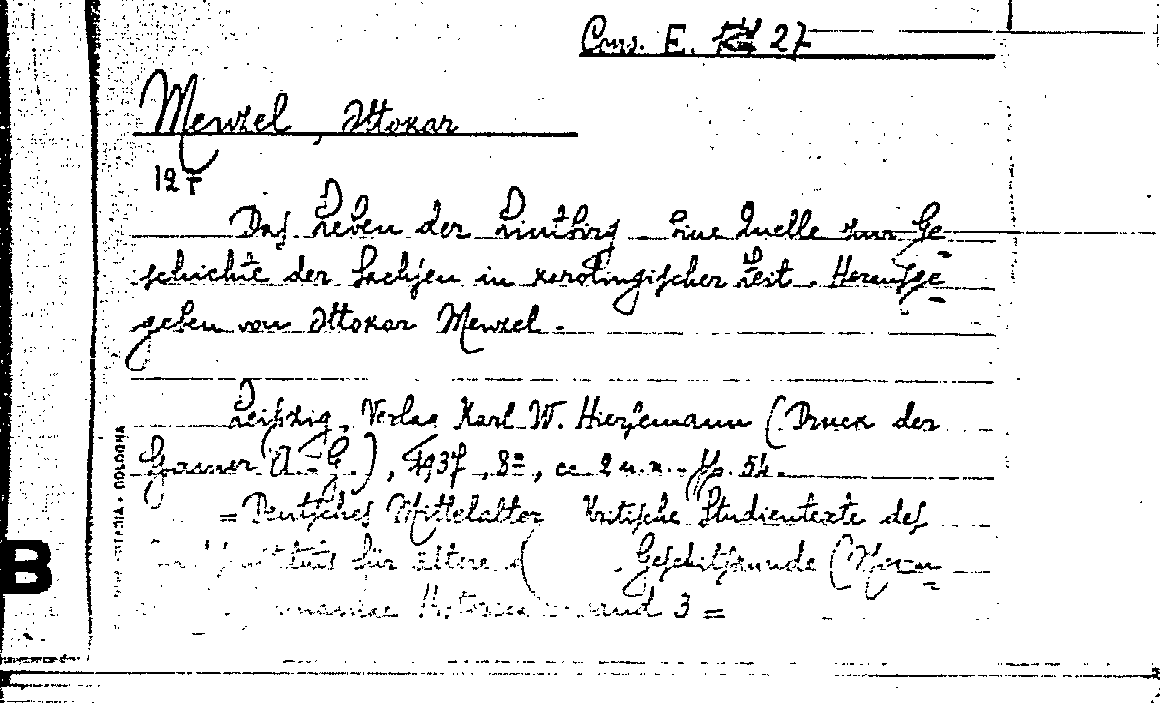 Cons. E. 27
Menzel, Ottokar
127
Das Leben der Liutbirg. Eine Quelle zur Ge=
schichte der Sachsen in karolingischer Zeit. Herausge=
geben von Ottokar Menzel.
Leipzig, Verlag Karl W. Hiersemann (Druck der
A.-G.), 1937, 8º, cc 2 u.n. pp. 54.
=Deutsches Mittelalter Kritische Studientexte des
für ältere Geschichtskunde (Monu=
Historica Band 3 =
BOLOGNA
B